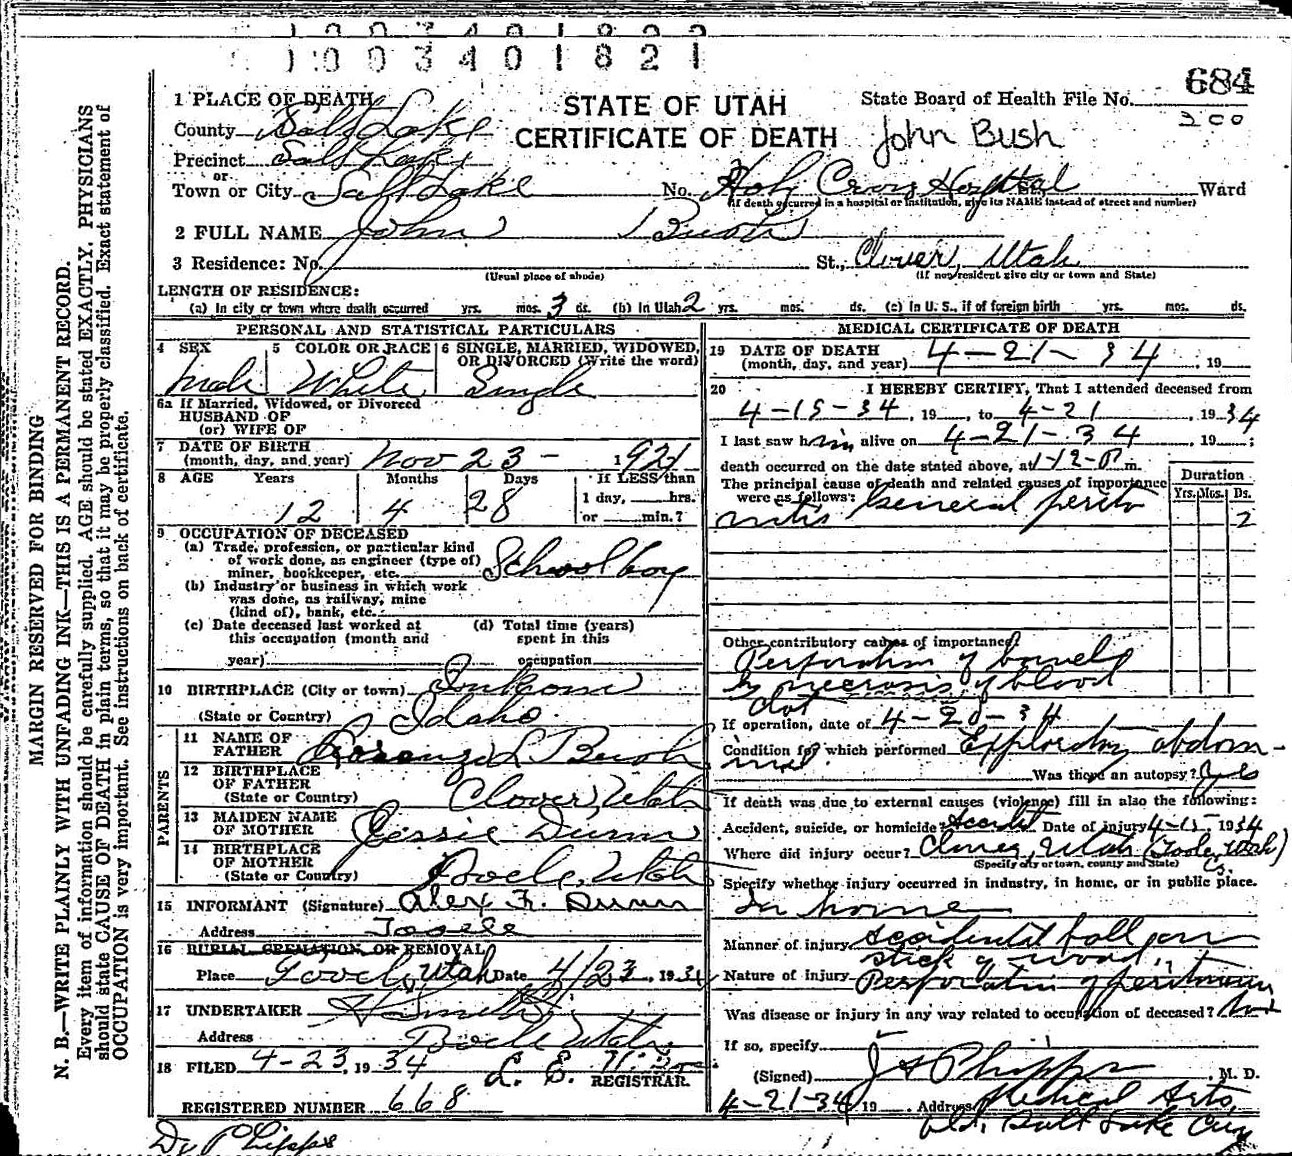 1003401821
684
1 PLACE OF DEATH
STATE OF UTAH
State Board of Health File No.
200
County Salt Lake
CERTIFICATE OF DEATH John Bush
Precinct Salt Lake
or
Town or City Salt Lake No. Holy Cross Hospital St., Ward
(If death occurred in a hospital or institution, give its NAME instead of street and number)
2 FULL NAME John Bush
3 Residence: No. St., Clover, Utah
(Usual place of abode) (If nonresident give city or town and State)
LENGTH OF RESIDENCE:
(a) In city or town where death occurred yrs. mos. 3 ds. (b) In Utah 2 yrs. mos. ds. (c) In U. S., if of foreign birth yrs. mos. ds.
PERSONAL AND STATISTICAL PARTICULARS
4 SEX 5 COLOR OR RACE 6 SINGLE, MARRIED, WIDOWED,
OR DIVORCED (Write the word)
Male White Single
6a If Married, Widowed, or Divorced
HUSBAND OF
(or) WIFE OF
7 DATE OF BIRTH
(month, day, and year) Nov 23 - 1921
8 AGE Years Months Days If LESS than
1 day, hrs.
12 4 28 or min.?
9 OCCUPATION OF DECEASED
(a) Trade, profession, or particular kind
of work done, as engineer (type of)
miner, bookkeeper, etc. School boy
(b) Industry or business in which work
was done, as railway, mine
(kind of), bank, etc.
(c) Date deceased last worked at (d) Total time (years)
this occupation (month and spent in this
year) occupation
10 BIRTHPLACE (City or town) Inkom
(State or Country) Idaho
PARENTS
11 NAME OF
FATHER Lorenzo L Bush
12 BIRTHPLACE
OF FATHER
(State or Country) Clover, Utah
13 MAIDEN NAME
OF MOTHER Jessie Dunn
14 BIRTHPLACE
OF MOTHER
(State or Country) Tooele, Utah
15 INFORMANT (Signature) Alex F. Dunn
Address Tooele
16 BURIAL CREMATION OR REMOVAL
Place Tooele, Utah Date 4/23, 1934
17 UNDERTAKER
Address Tooele Utah
18 FILED 4-23, 1934 L. E.
REGISTRAR
REGISTERED NUMBER 668
Dr Phipps
MEDICAL CERTIFICATE OF DEATH
19 DATE OF DEATH
(month, day, and year) 4-21-34, 19
20 I HEREBY CERTIFY, That I attended deceased from
4-15-34, 19, to 4-21, 1934
I last saw him alive on 4-21-34, 19;
death occurred on the date stated above, at m.
The principal cause of death and related causes of importance
were as follows: General perito
nitis
Duration
Yrs. Mos. Ds.
2
Other contributory causes of importance:
Perforation of bowel
by necrosis of blood
clot
If operation, date of 4-20-34
Condition for which performed Exploratory abdom-
inal
Was there an autopsy? Yes
If death was due to external causes (violence) fill in also the following:
Accident, suicide, or homicide? Accident Date of injury 4-15-1934
Where did injury occur? Clover, Utah (Tooele Co. Utah)
(Specify city or town, county and State)
Specify whether injury occurred in industry, in home, or in public place.
In home
Manner of injury accidental fall on
stick of wood
Nature of injury Perforation of peritoneum
Was disease or injury in any way related to occupation of deceased? Not
If so, specify
(Signed) J A Phipps, M. D.
4-21-34, 19 Address Medical Arts
Bld. Salt Lake City
MARGIN RESERVED FOR BINDING
N. B.—WRITE PLAINLY WITH UNFADING INK—THIS IS A PERMANENT RECORD.
Every item of information should be carefully supplied. AGE should be stated EXACTLY. PHYSICIANS
should state CAUSE OF DEATH in plain terms, so that it may be properly classified. Exact statement of
OCCUPATION is very important. See instructions on back of certificate.